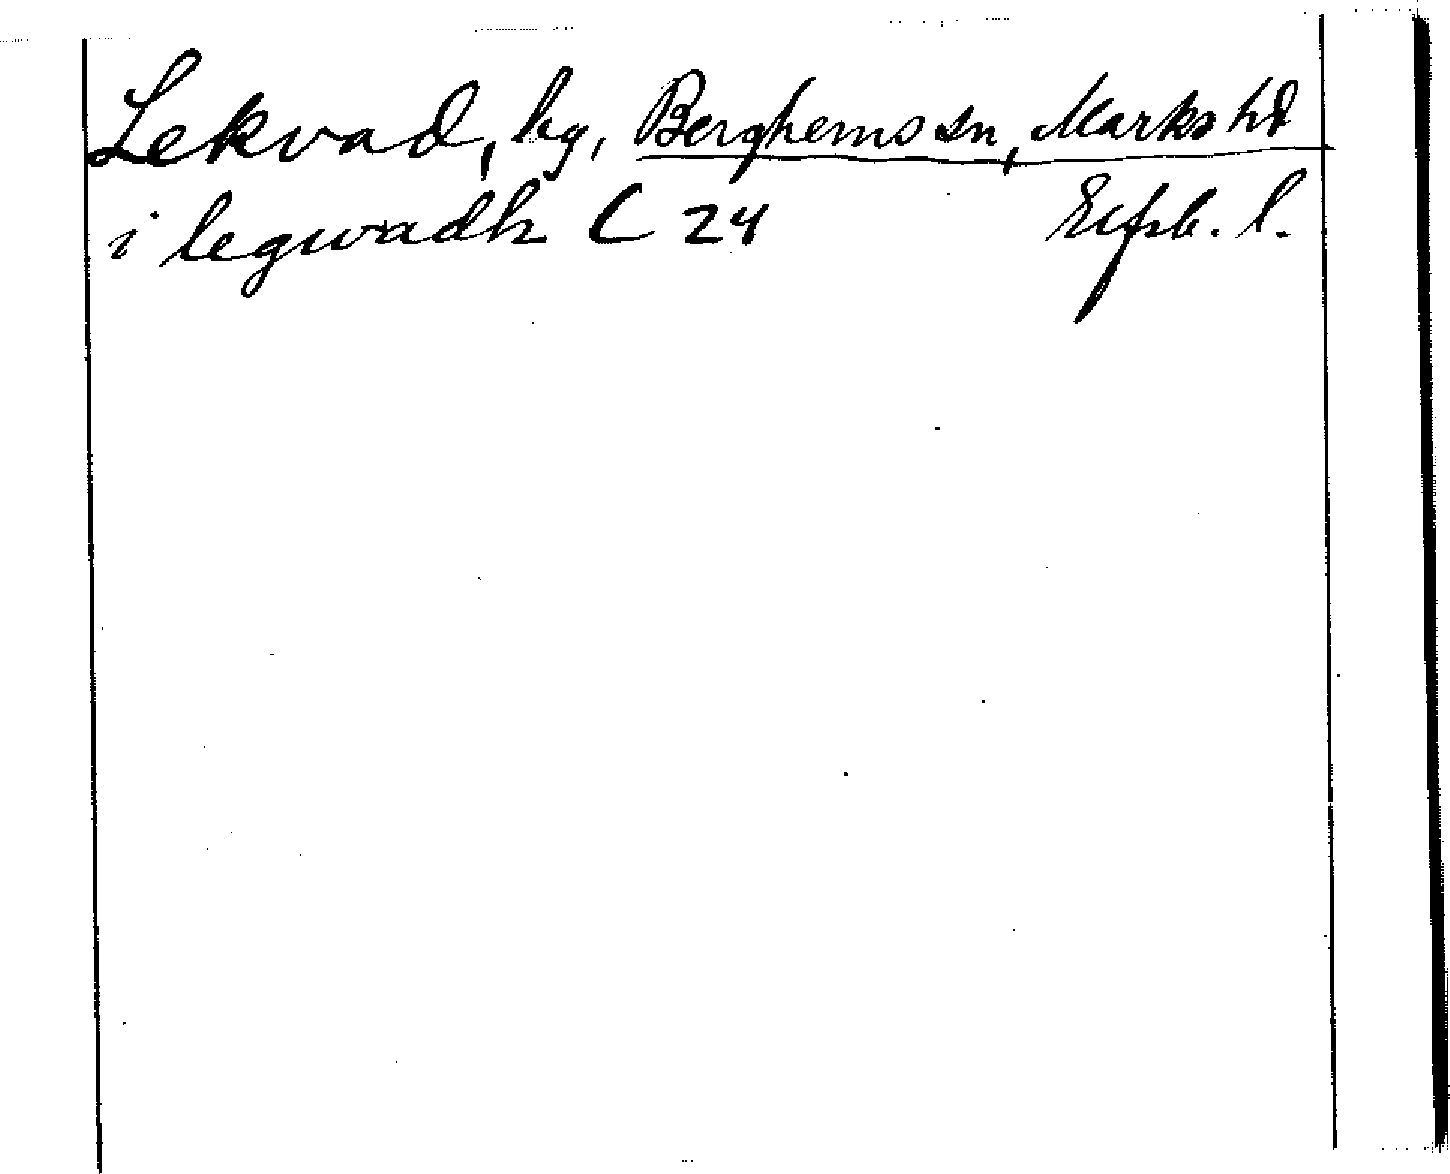 Lekvad, by, Berghems sn, Marks hd
i legwadh C 24 Elfsb. l.